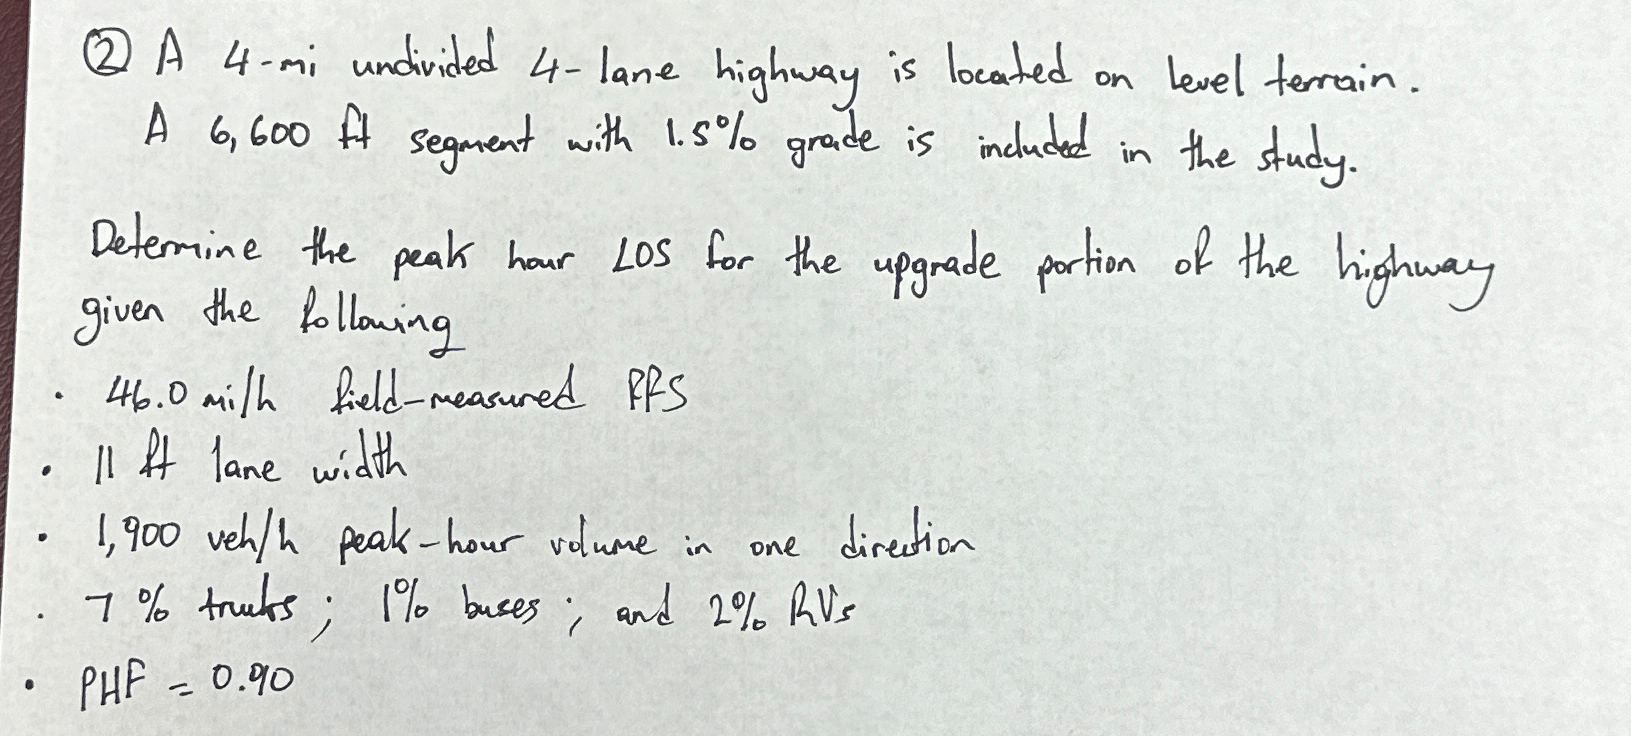 ② A 4-mi undivided 4-lane highway is located on level terrain.
A 6,600 ft segment with 1.5% grade is included in the study.
Determine the peak hour LOS for the upgrade portion of the highway
given the following
· 46.0 mi/h field-measured FFS
· 11 ft lane width
· 1,900 veh/h peak-hour volume in one direction
· 7% trucks; 1% buses; and 2% RVs
· PHF = 0.90